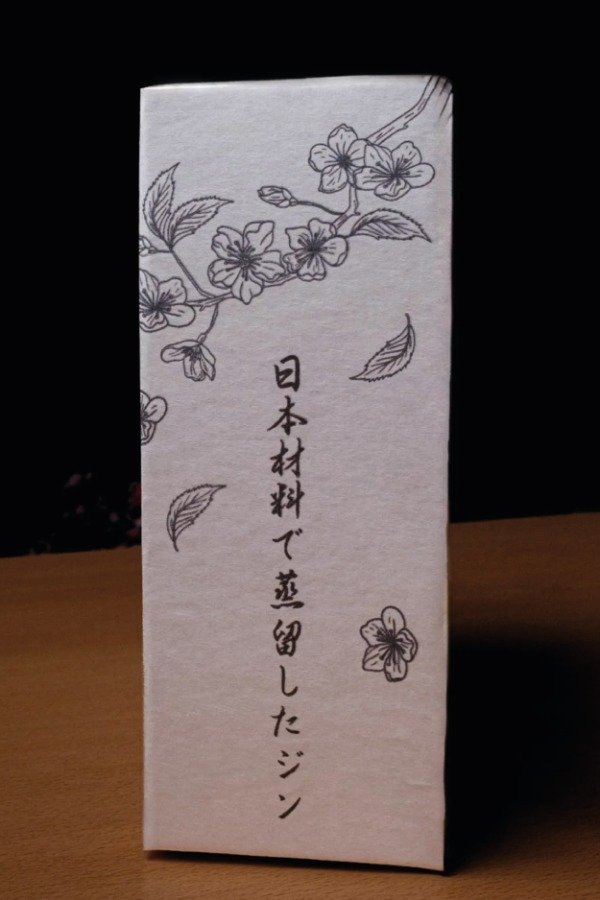 日本材料で蒸留したジン